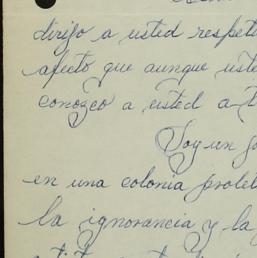 dirijo a usted respetu
afecto que aunque uste
conozco a usted a t
Soy un jo
en una colonia prolet
la ignorancia y la